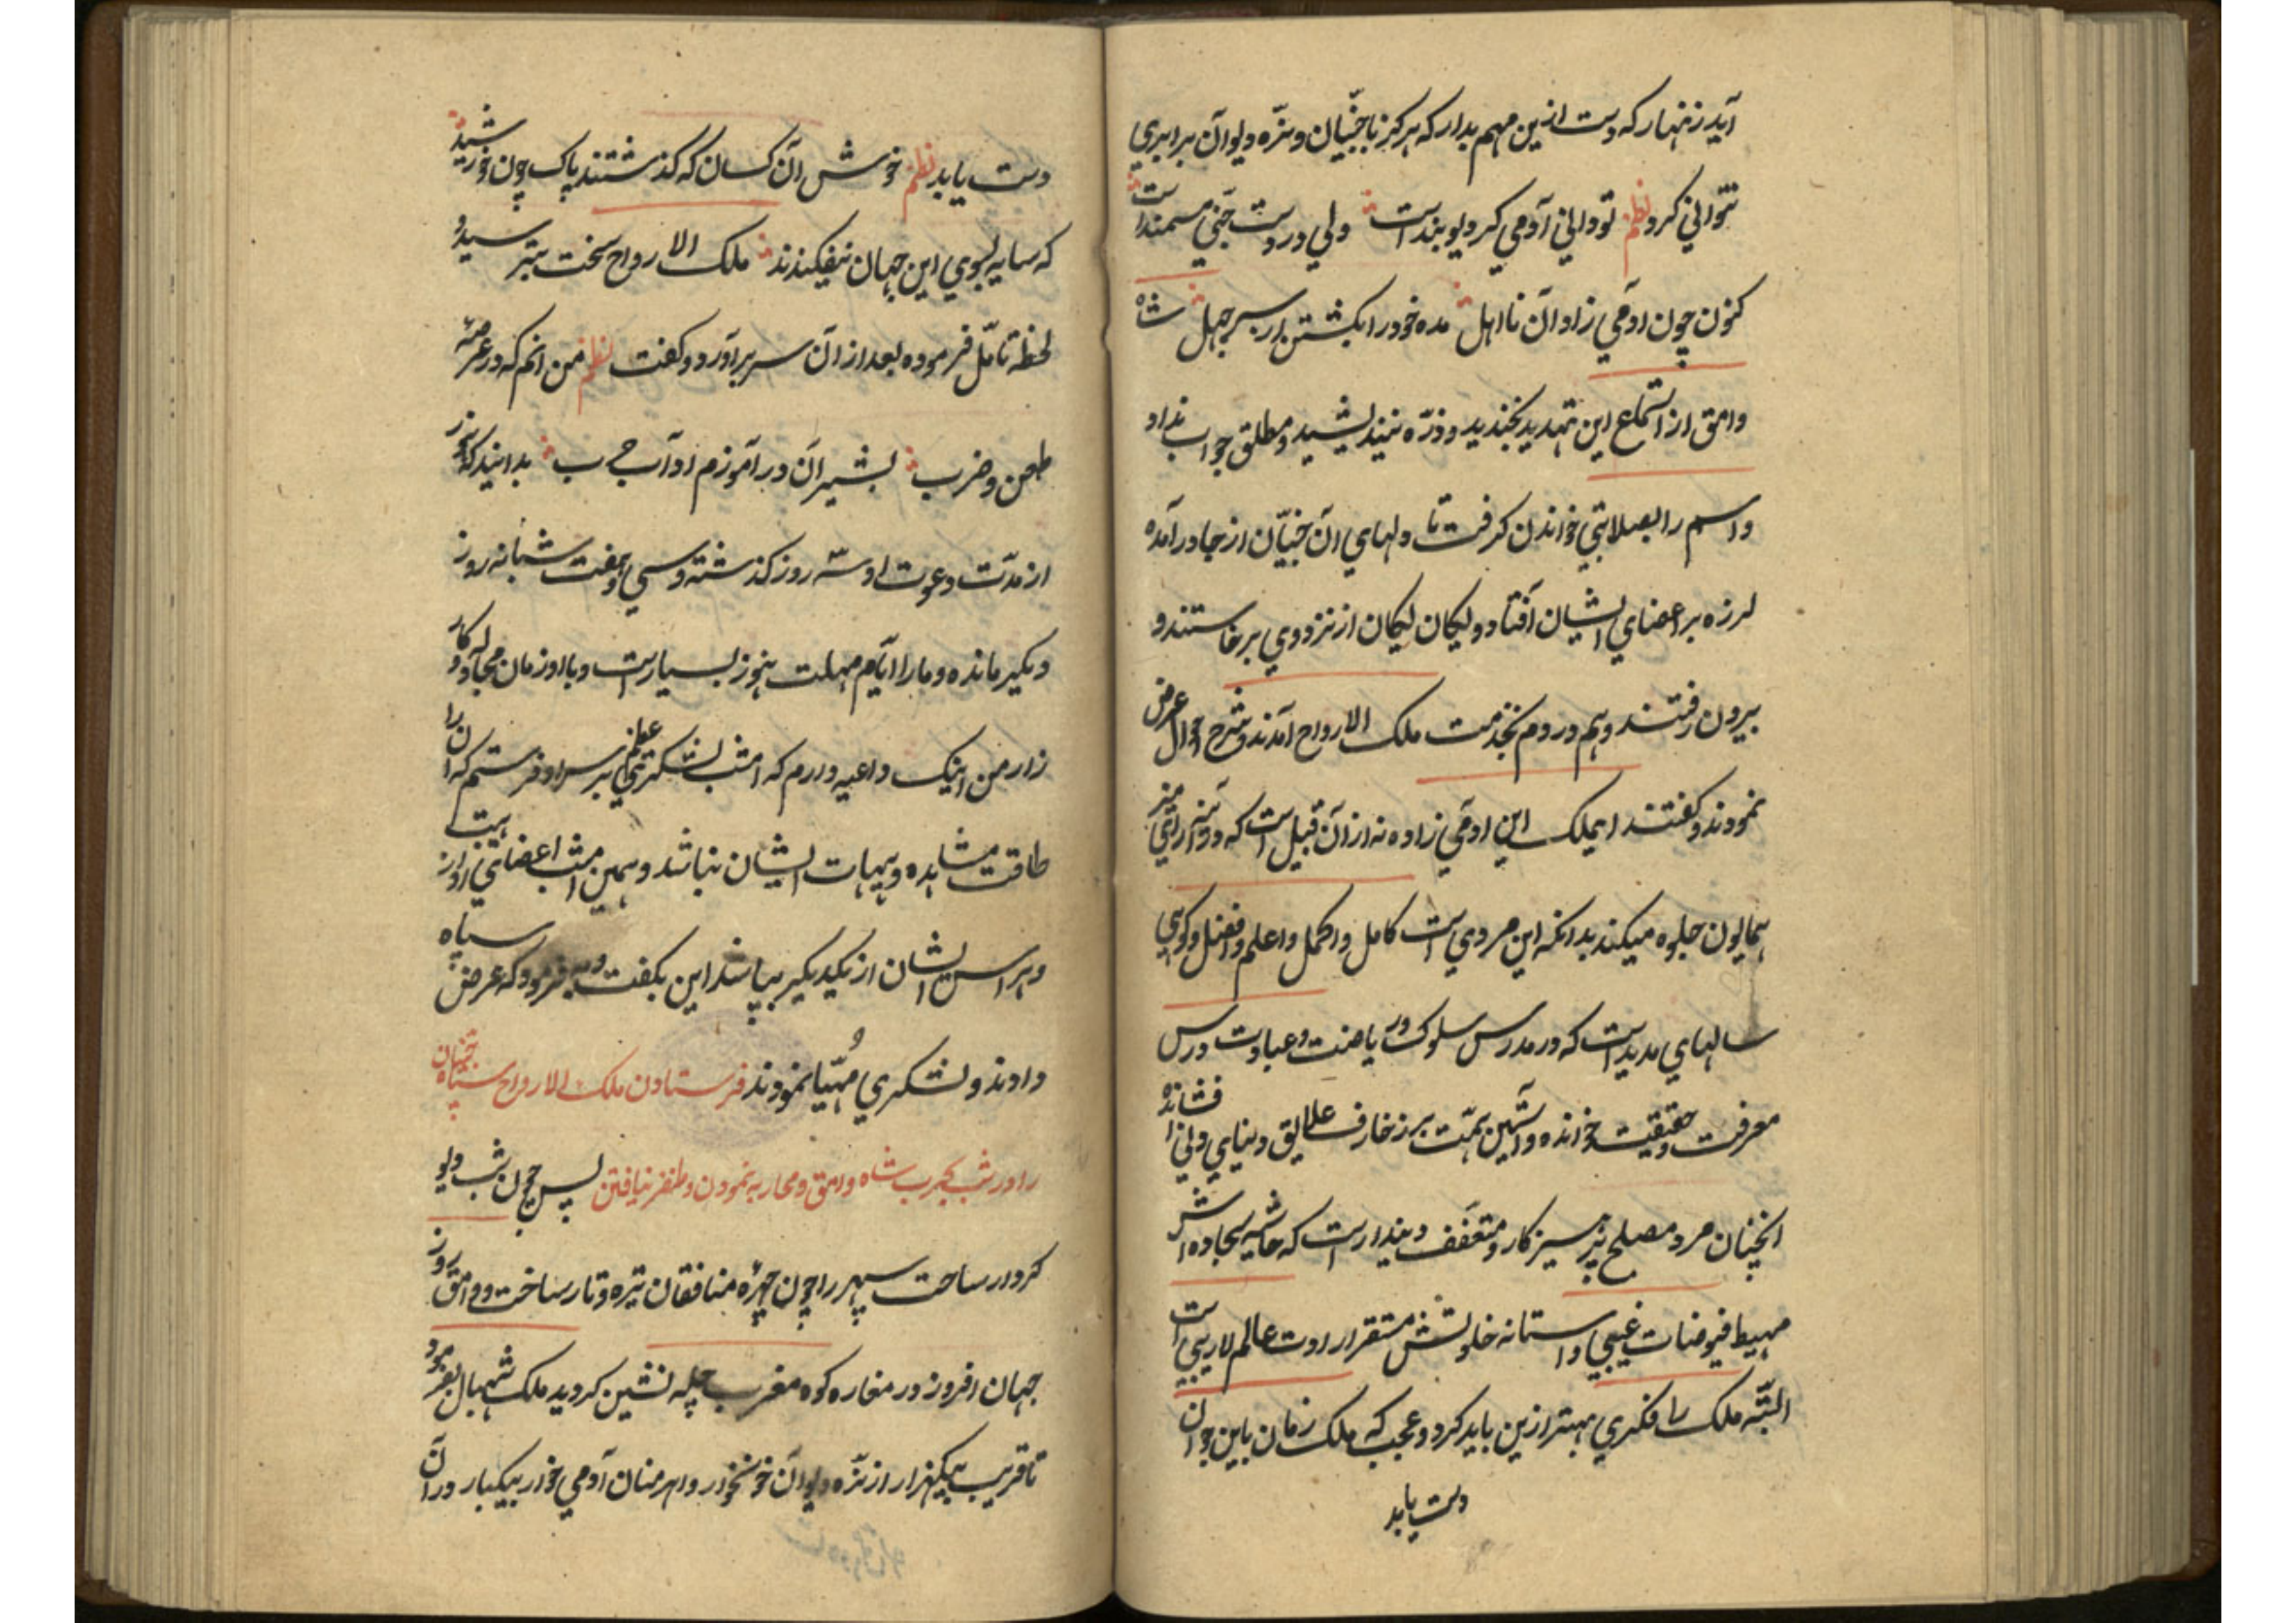 آید زنهار که دست ازین مهم بدار که هرکز با جنّیان و نرّه دیوان برابری
نتوانی کرد نظم تو دانی آدمی کر دیو بندست ولی در دست جنّی مستمند است
کنون چون آدمی زاد آن نااهل مده خود را بکشتن از سر جهل شاه
وامق از استماع این تهدید بخندید و ذرّه نیندیشید و مطلق جواب نداد
و اسم را بصلابتی خواندن کرفت تا دلهای آن جنّیان از جا درآمده
لرزه بر اعضای ایشان افتاد و لیکان لیکان از نزد وی برخاستند و
بیرون رفتند و هم در دم بخدمت ملک الارواح آمدند و شرح احوال عرض
نمودند و کفتند ایملک این آدمی زاده نه از آن قبیل است که در آئینه رای
همایون جلوه میکند بدانکه این مردی است کامل و اکمل و اعلم و افضل و کویی
سالهای مدید است که در مدرس سلوک و ریاضت و عبادت درس
معرفت و حقیقت خوانده و آستین همّت بر زخارف علایق دنیای دنی افشانده
انچنان مرد مصلح پرهیزکار و متعفف دیندار است که حاشیه سجاده اش
مهبط فیوضات غیبی و آستانه خلوتش مستقر ارادت عالم لاریبی است
البتّه ملک را فکری بهتر ازین باید کرد و عجب که ملک زمان باین جوان
دست یابد
دست یابد نظم خوش آن کسان که کذشتند پاک چون خورشید
که سایه بسوی این جهان نیفکندند ملک الارواح سخت بترسید و
لحظه تامّل فرموده بعد از آن سر برآورد و کفت نظم من انم که در عرصه
طعن و ضرب بشیران درآموزم آداب حرب بدانید که هنوز
از مدّت دعوت او سه روز کذشته و سی و هفت شبانه روز
دیکر مانده و ما را ایّام مهلت هنوز بسیارست و با او زمان مجادله و کار
زار من اینک داعیه دارم که امشب لشکری عظیم بر سر او فرستم که آن را
طاقت مشاهده هیهات ایشان نباشد و همین امشب اعضای او از هیبت
و هراس ایشان از یکدیکر بپاشد این بکفت و بفرمود که عرض سپاه
دادند و لشکری مُهیّا نمودند فرستادن ملک الارواح سپاه جنیان
را در شب بحرب شاه وامق و محاربه نمودن و ظفر نیافتن پس چون شب دیو
کردار ساحت سپهر را چون چهرهٔ منافقان تیره و تار ساخت و وامق روز
جهان افروز در مغاره کوه مغرب چله نشین کردید ملک شهبال بفرمود
تا قریب بیکهزار از نرّه دیوان خونخوار و اهرمنان آدمی خوار بیکبار در آن